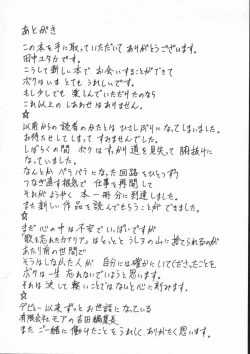 あとがき
この本を手に取っていただいて ありがとうございます。
田中ユタカです。
こうして新しい本で お会いすることができて
ボクはいま とても うれしいです。
もし少しでも 楽しんでいただけたのなら
これ以上の しあわせは ありません。
☆
以前からの読者のかたとは ひさしぶりに なってしまいました。
お待たせしてしまって すみませんでした。
しばらくの間 ボクは すっかり道を見失って 腑抜けに
なっていました。
なんとか バラバラに なった回路を ひとつずつ
つなぎ直す根気で 仕事を再開して
それがようやく 本一冊分に到達しました。
また新しい作品を読んでもらうことが できました。
☆
まだ 心の中は 不安で いっぱいですが
"歌を忘れたカナリア" はもっととうしろの山に捨てられるのが
あたり前の世間で
そうはしなかった人が 自分には確かにしてくださったことを
ボクは一生 忘れないでいようと思います。
それは決して軽いことではないと心に刻みます。
☆
デビュー以来ずっとお世話になっている
有限会社モアの吉田編集長
また ご一緒に 働けたことを うれしく、ありがたく思います。